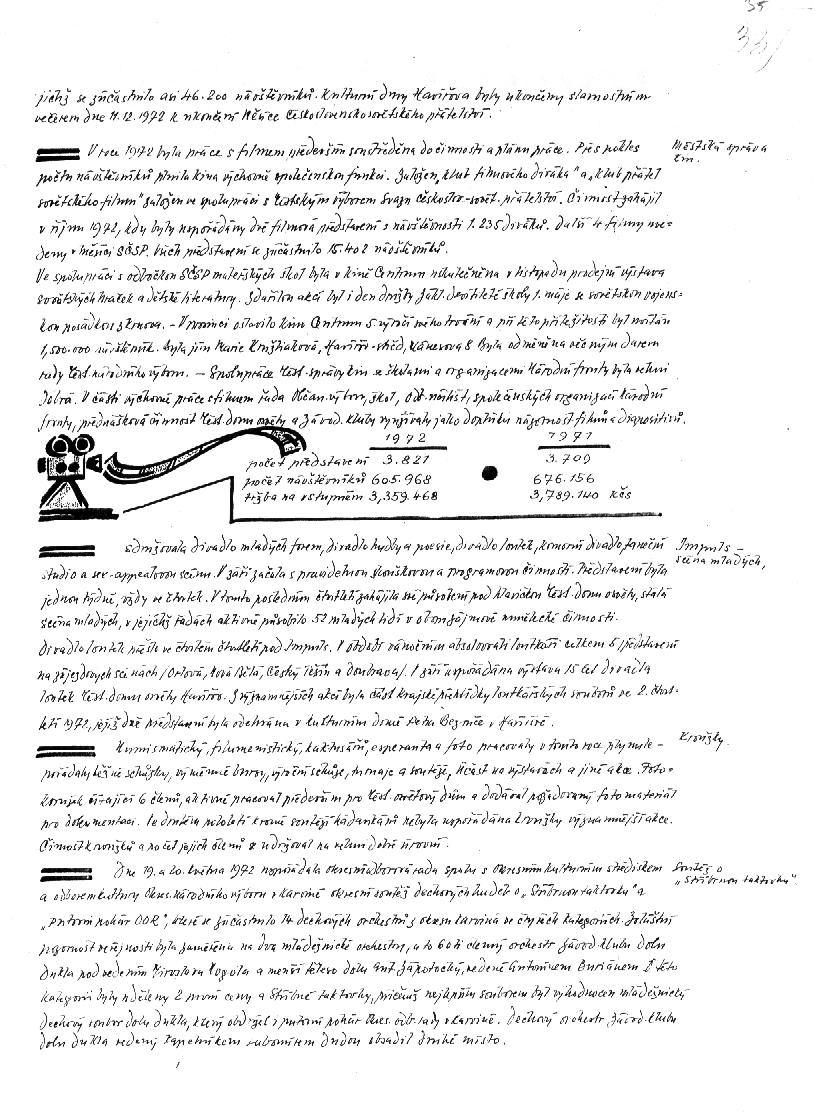 35
jichž se zúčastnilo asi 46.200 návštěvníků. Kulturní dny Havířova byly ukončeny slavnostním
večerem dne 11.12.1972 k ukončení Měsíce Československo sovětského přátelství.
V roce 1972 byla práce s filmem především soustředěna do činnosti a plánu práce. Přes pokles
Městská správa
kin.
počtu návštěvníků plnila kina výchovně společenskou funkci. Založen „klub filmového diváka" a „klub přátel
sovětského filmu" založen ve spolupráci s Městským výborem Svazu českoslov.-sovět. přátelství. Činnost zahájil
v říjnu 1972, kdy byly uspořádány dvě filmová představení s návštěvností 1.235 diváků. Další 4 filmy uve-
deny v Měsíci SČSP. Všech představení se zúčastnilo 15.402 návštěvníků.
Ve spolupráci s odbočkou SČSP mateřských škol byla v kině Centrum uskutečněna v listopadu prodejní výstava
sovětských hraček a dětské literatury. Zdařilou akcí byl i den družby Zákl. devítileté školy 1. máje se sovětskou vojens-
kou posádkou z Krnova. - V prosinci oslavilo kino Centrum 5. výročí svého trvání a při této příležitosti byl uvítán
1,500.000 návštěvník. Byla jím Marie Křižáková, Havířov-střed, 8 Byla odměněna věcným darem
rady Měst. národního výboru. - Spolupráce Měst. správy kin se školami a organizacemi Národní fronty byla velmi
dobrá. V části výchovné práce s filmem řada Občan. výborů, škol, společenských organizací Národní
fronty, přednášková činnost Měst. domu osvěty a Závod. kluby využívaly jako doplňku názornost filmů a diapositivů.
1972 1971
počet představení 3.821 3.709
počet návštěvníků 605.968 676.156
tržba na vstupném 3,359.468 3,789.140 Kčs
sdružovala divadlo mladých forem, divadlo hudby a poesie, divadlo loutek, komorní divadlo, taneční
Impuls -
scéna mladých,
studio a sex-appealovou scénu. V září začala s pravidelnou zkouškovou a programovou činností. Představení byla
jednou týdně, vždy ve čtvrtek. V tomto posledním čtvrtletí zahájila své působení pod hlavičkou Měst. domu osvěty, stálá
scéna mladých, v jejichž řadách aktivně působilo 52 mladých lidí v oboru zájmové umělecké činnosti.
Divadlo loutek přešlo ve čtvrtém čtvrtletí pod Impuls. V období vánočním absolvovali loutkáři celkem 5 představení
na zájezdových scénách /Orlová, Nová Bělá, Český Těšín a Doubrava/. V září uspořádána výstava 15 let divadla
loutek Měst. domu osvěty Havířov. Z významnějších akcí byla část krajské přehlídky loutkářských souborů ve 2. čtvrt-
letí 1972, jejíž dvě představení byla odehrána v kulturním domě Petra Bezruče v Havířově.
Numismatický, filumenistický, kaktusářů, esperanta a foto pracovaly v tomto roce plynule -
Kroužky.
pořádaly běžné schůzky, výměnné burzy, výroční schůze, turnaje a soutěže, účast na výstavách a jiné akce. Foto-
kroužek čítající 6 členů, aktivně pracoval především pro Měst. osvětový dům a dodával požadovaný fotomateriál
pro dokumentaci. Ve druhém pololetí kromě soutěží hádankářů nebyla uspořádána kroužky významnější akce.
Činnost kroužků a počet jejich členů se udržoval na velmi dobré úrovni.
Dne 19. a 20. května 1972 uspořádala okresní odborová rada spolu s Okresním kulturním střediskem
Soutěž o
„Stříbrnou taktovku".
a odborem kultury Okres. národního výboru v Karviné okresní soutěž dechových hudeb o „Stříbrnou taktovku" a
„Putovní pohár OOR", které se zúčastnilo 14 dechových orchestrů z okresu Karviná ve čtyřech kategoriích. Zvláštní
pozornost veřejnosti byla zaměřena na dva mládežnické orchestry, a to 60ti členný orchestr Závod. klubu dolu
Dukla pod vedením Miroslava Kozola a menší těleso dolu Ant. Zápotocký, vedené Antonínem Buriánem. V této
kategorii byly uděleny 2 první ceny a Stříbrné taktovky, přičemž nejlepším souborem byl vyhodnocen mládežnický
dechový soubor dolu Dukla, který obdržel i putovní pohár Okres. odb. rady v Karviné. Dechový orchestr Závod. klubu
dolu Dukla vedený kapelníkem Lubomírem Dudou obsadil druhé místo.